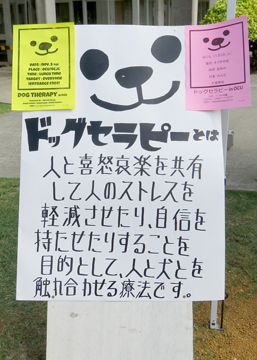 DOG THERAPY
ドッグセラピー in OCU
ドッグセラピーとは
人と喜怒哀楽を共有
して人のストレスを
軽減させたり、自信を
持たせたりすることを
目的として、人と犬とを
触れ合わせる療法です。